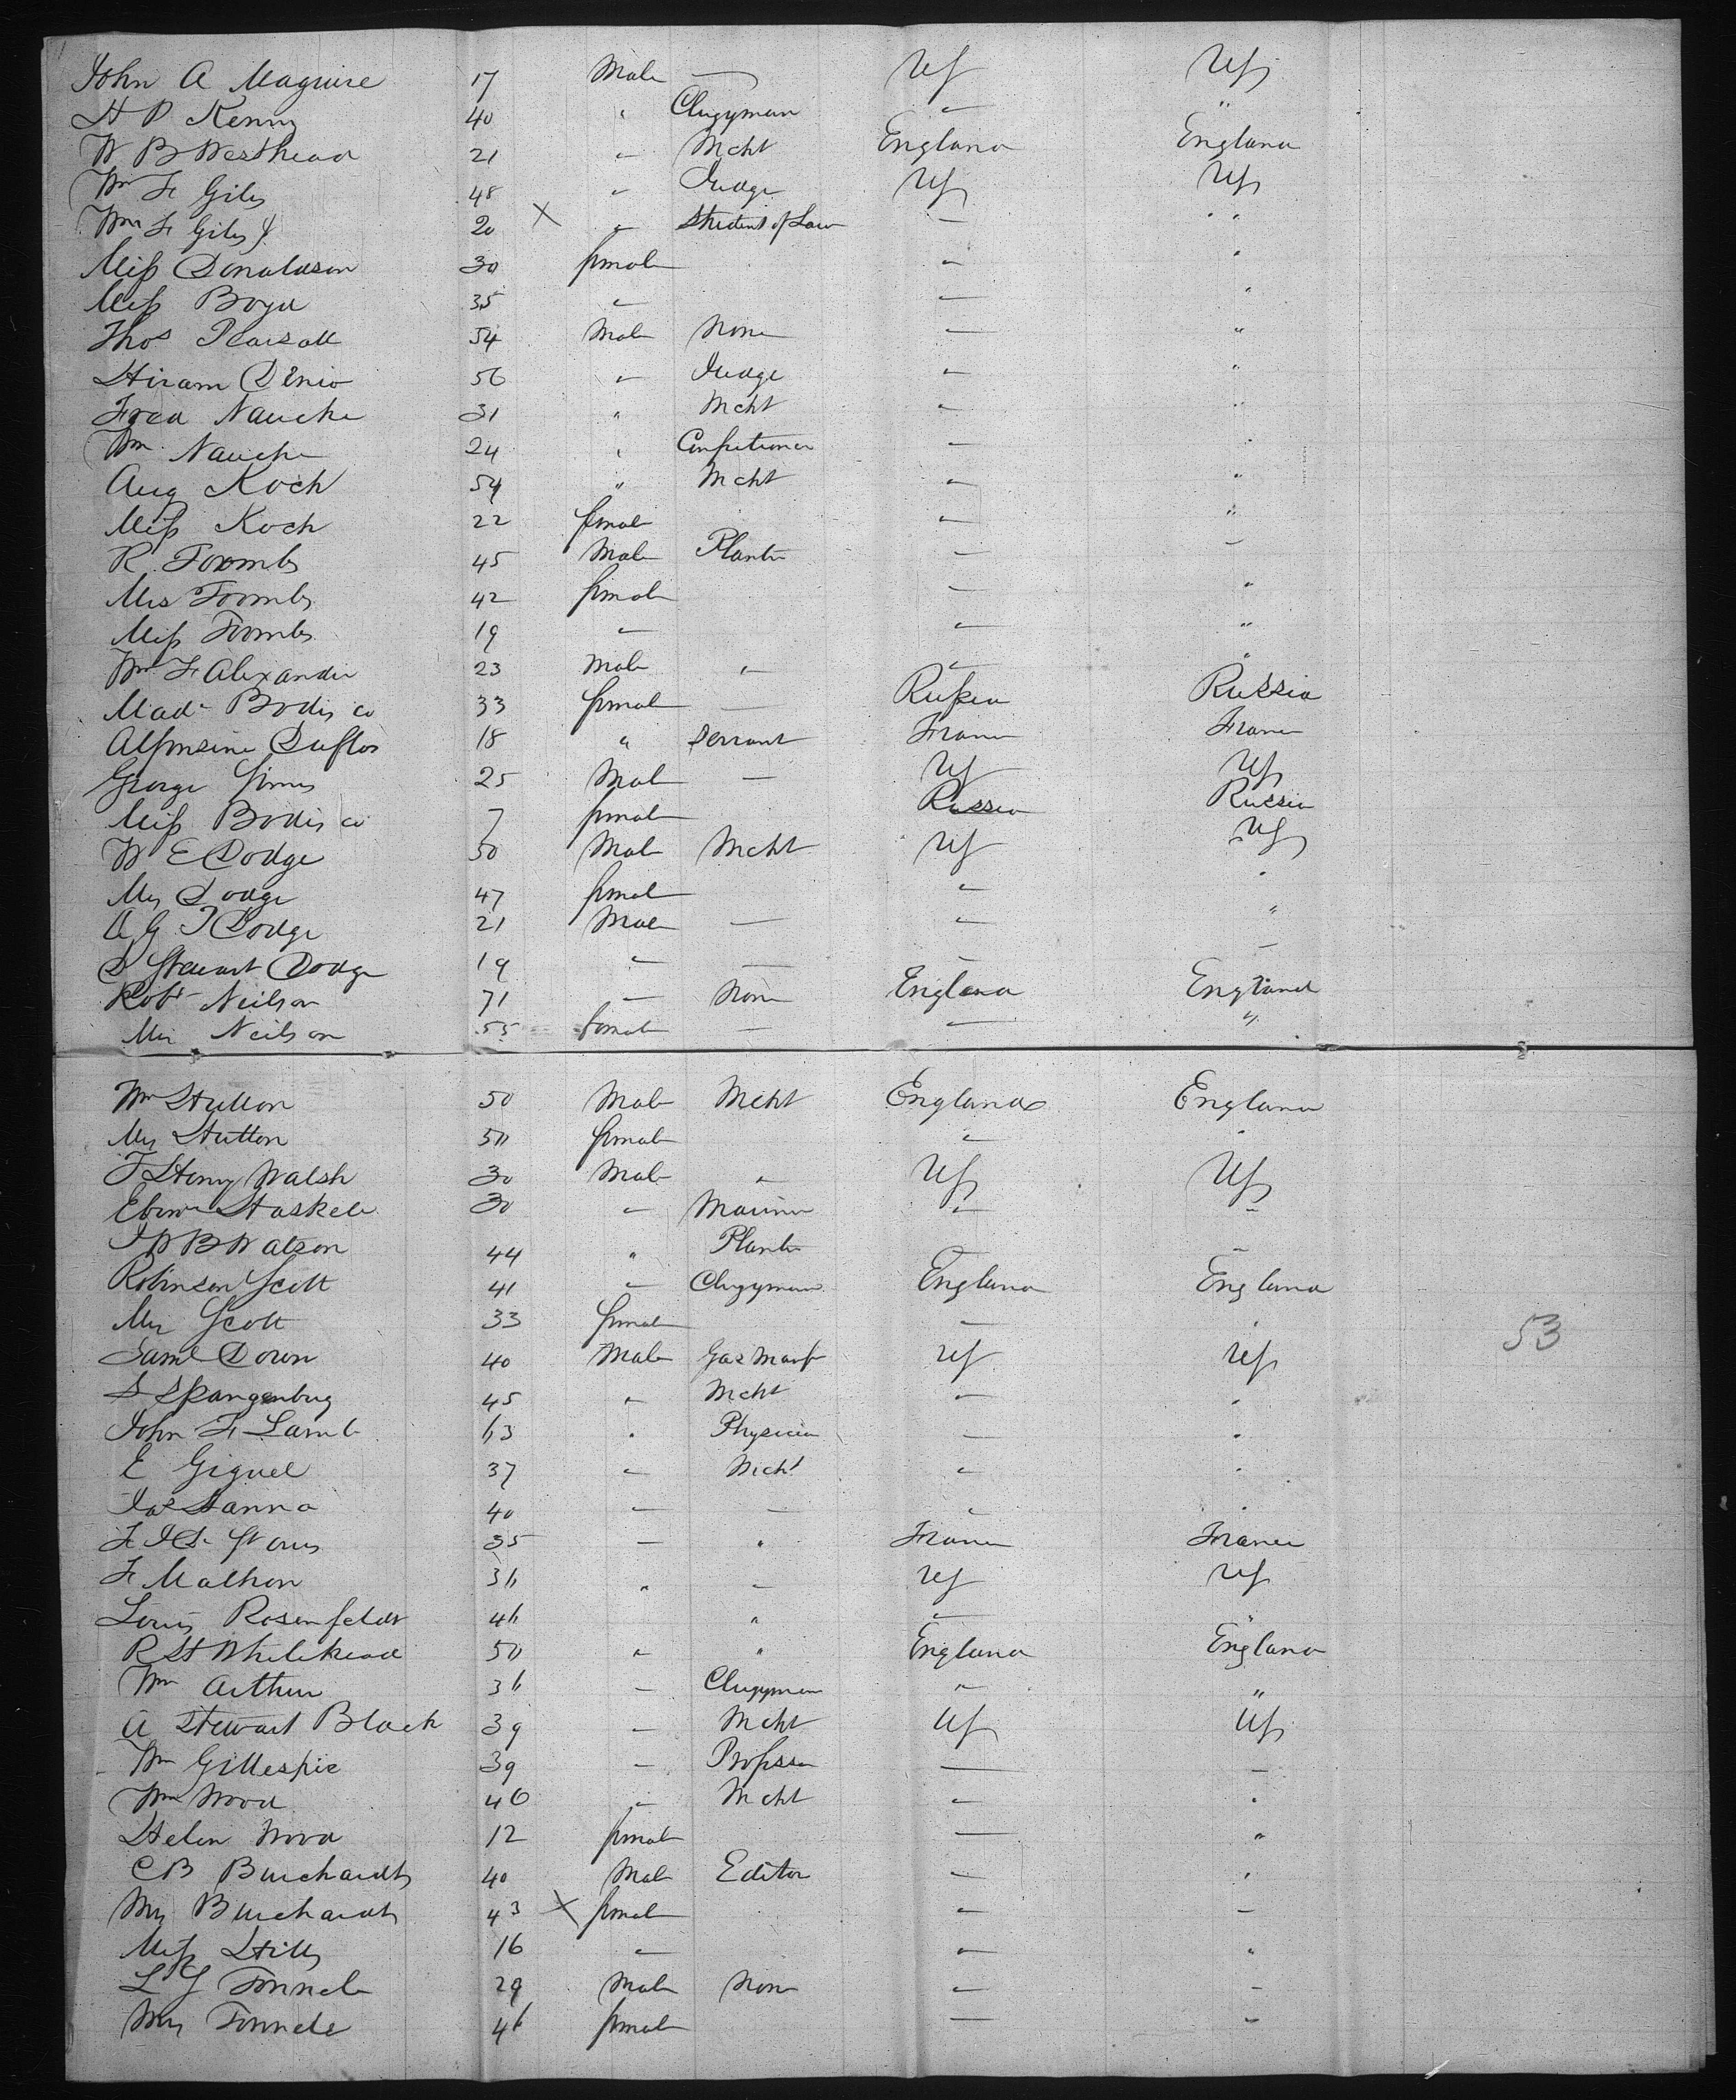 John A Maguire 17 Male — US US
H P Kenny 40 " Clergyman — "
W B Westhead 21 " Mcht England England
Wm F Giles 48 " Judge US US
Wm F Giles Jr 20 X " Student of Law — "
Miss Donaldson 30 female — "
Miss Boyd 35 " — "
Thos Pearsall 54 Male None — "
Hiram Denio 56 " Judge — "
Fred Naucke 31 " Mcht — "
Wm Naucke 24 " Confectioner — "
Aug Koch 54 " Mcht — "
Miss Koch 22 female — "
R. Toombs 45 Male Planter — "
Mrs Toombs 42 female — "
Miss Toombs 19 " — "
Wm F Alexander 23 Male " — "
Mad Bodisco 33 female — Russia Russia
Alphonsine Duflos 18 " Servant France France
George 25 Male — US US
Miss Bodisco 7 female Russia Russia
W E Dodge 50 Male Mcht US US
Mrs Dodge 47 female — "
A G P Dodge 21 Male — — "
D Stewart Dodge 19 " — — —
Robt Neilson 71 — None England England
Mrs Neilson 55 female — — "
Wm Hutton 50 Male Mcht England England
Mrs Hutton 50 female " "
T Henry Walsh 30 Male " US US
Haskell 30 " Mariner " "
J W B Watson 44 " Planter — —
Robinson Scott 41 " Clergyman England England
Mrs Scott 33 female — "
Saml Down 40 Male Gas Manf US US
S Spangenburg 45 " Mcht — "
John F Lamb 63 " Physician — "
E Giquel 37 " Mcht — "
Jas Hanna 40 — — — "
35 — " France France
F Mathon 36 " — US US
Louis Rosenfeldt 46 " — "
R H Whitehead 50 " " England England
Wm Arthur 36 — Clergyman " "
A Stewart Black 39 — Mcht US US
Wm Gillespie 39 — Professor — —
Wm Wood 40 — Mcht — "
Helen Wood 12 female — "
C B Burchardts 40 Male Editor — "
Mrs Burchardts 43 X female — —
Miss Hills 16 " — "
L G Tonnele 29 Male None — —
Mrs Tonnele 46 female — —
53